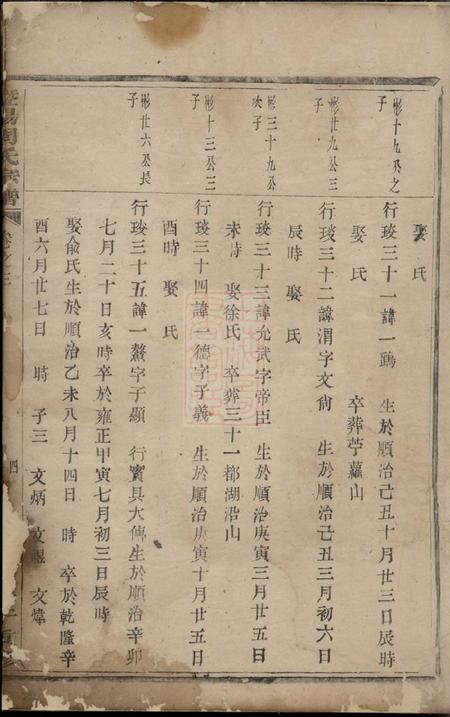 娶 氏
彬十九公之子
行琰三十一諱一鷁 生於順治己丑十月廿三日辰時
娶 氏 卒葬苧蘿山
彬廿九公三子
行琰三十二諱渭字文尙 生於順治己丑三月初六日
辰時 娶 氏
彬三十九公次子
行琰三十三諱允武字帝臣 生於順治庚寅三月廿五日
未時 娶徐氏 卒葬三十一都湖沿山
彬十三公三子
行琰三十四諱一德字子義 生於順治庚寅十月廿五日
酉時 娶 氏
彬廿六公長子
行琰三十五諱一鰲字子顯 行實具大傳生於順治辛卯
七月二十日亥時卒於雍正甲寅七月初三日辰時
娶俞氏生於順治乙未八月十四日 時 卒於乾隆辛
酉六月廿七日 時 子三 文炳 文煜 文煒
暨陽周氏宗譜
卷之三
四